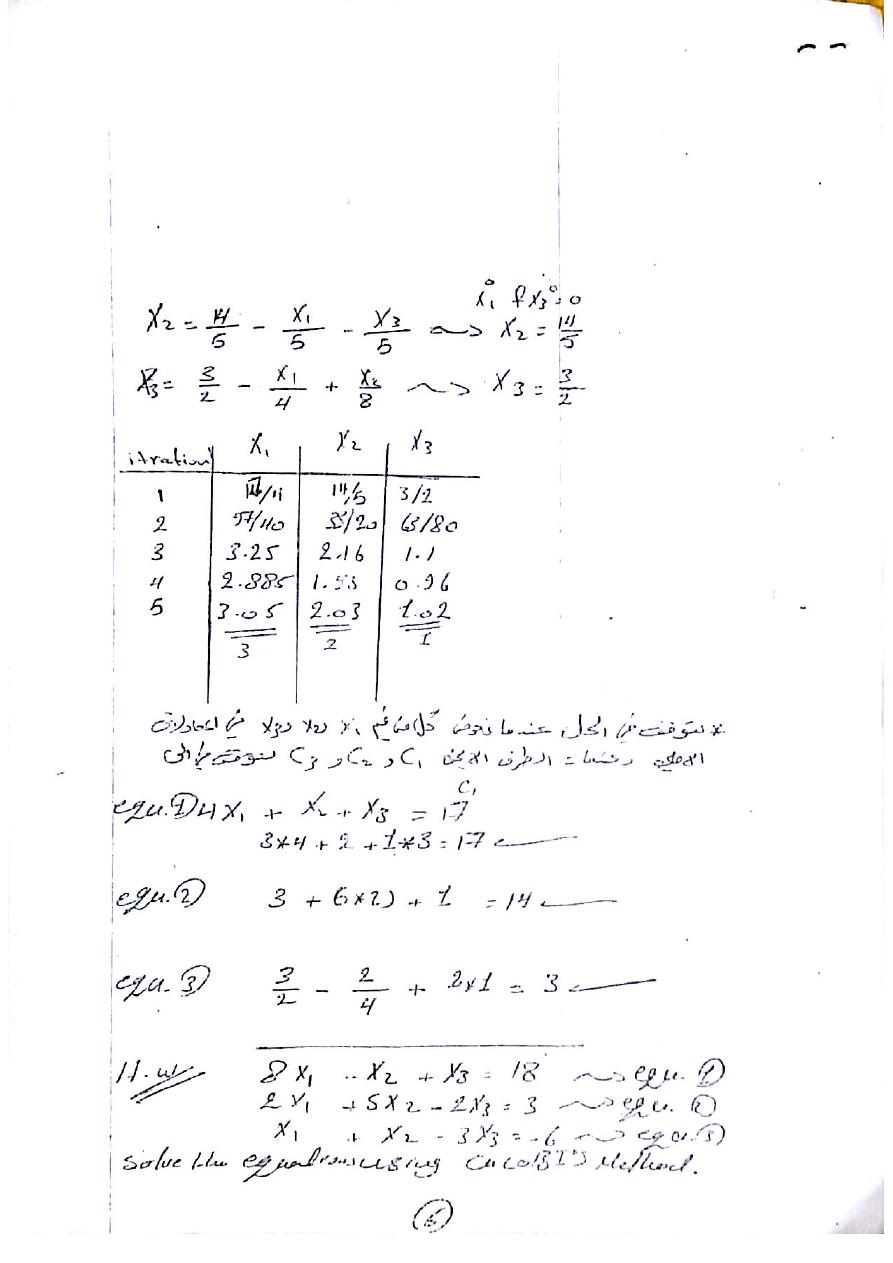 x₁° & x₃° = 0
X₂ = 14/5 - X₁/5 - X₃/5 ~> X₂ = 14/5
X₃ = 3/2 - X₁/4 + X₂/8 ~> X₃ = 3/2
itration X₁ X₂ X₃
1 17/4 14/5 3/2
2 /40 /20 63/80
3 3.25 2.16 1.1
4 2.885 1. 0.96
5 3.05 2.03 1.02
3 2 1
* نتوقف في الحل عندما نعوض كل من قيم x₁ و x₂ و x₃ في المعادلات
الطرف الايمن C₁ و C₂ و C₃
C₁
equ.① 4X₁ + X₂ + X₃ = 17
3*4 + 2 + 1*3 = 17
equ.② 3 + 6*2) + 1 = 14
equ.③ 3/2 - 2/4 + 2*1 = 3
H.w 8X₁ - X₂ + X₃ = 18 ~> equ.①
2X₁ + 5X₂ - 2X₃ = 3 ~> equ.②
X₁ + X₂ - 3X₃ = -6 ~> equ.③
Solve the equations using Method.
⑥